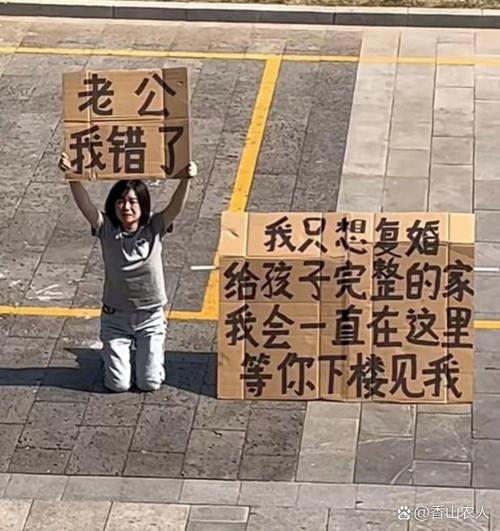 老公
我错了
我只想复婚
给孩子完整的家
我会一直在这里
等你下楼见我
香山农人